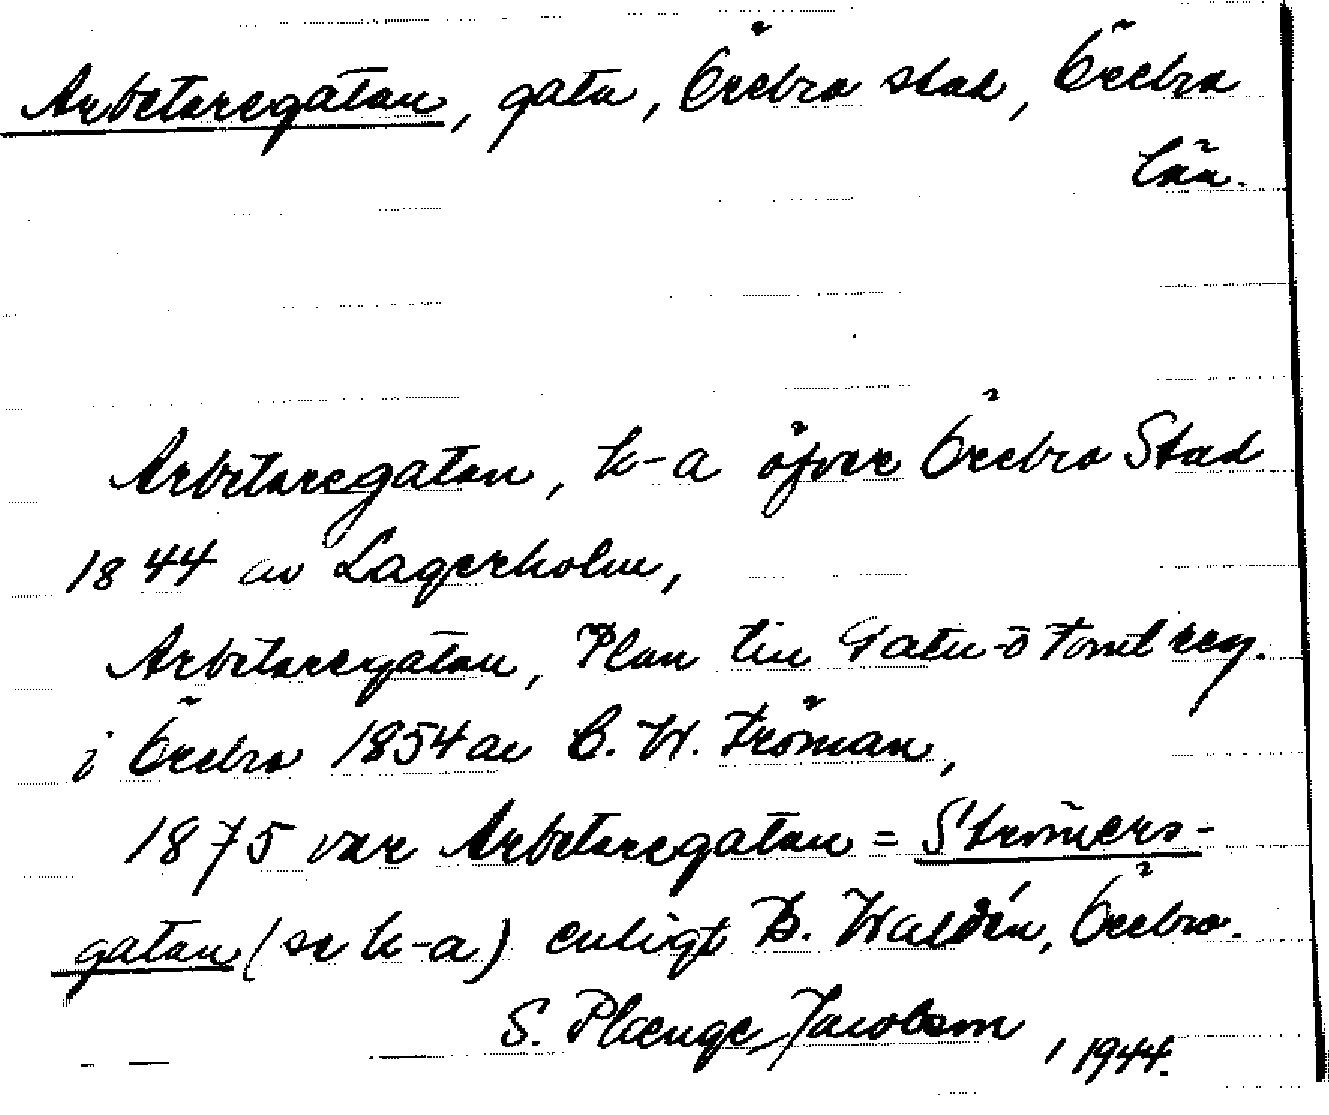 Arbetaregatan, gata, Örebro stad, Örebro
län.
Arbetaregatan, k-a öfver Örebro Stad
1844 av Lagerholm,
Arbetaregatan, Plan till Gatu-o Tomtreg.
i Örebro 1854 av C. W. Ströman,
1875 var Arbetaregatan = Strömers-
gatan (se k-a) enligt B. Waldén, Örebro.
S. Plænge Jacobson, 1944.